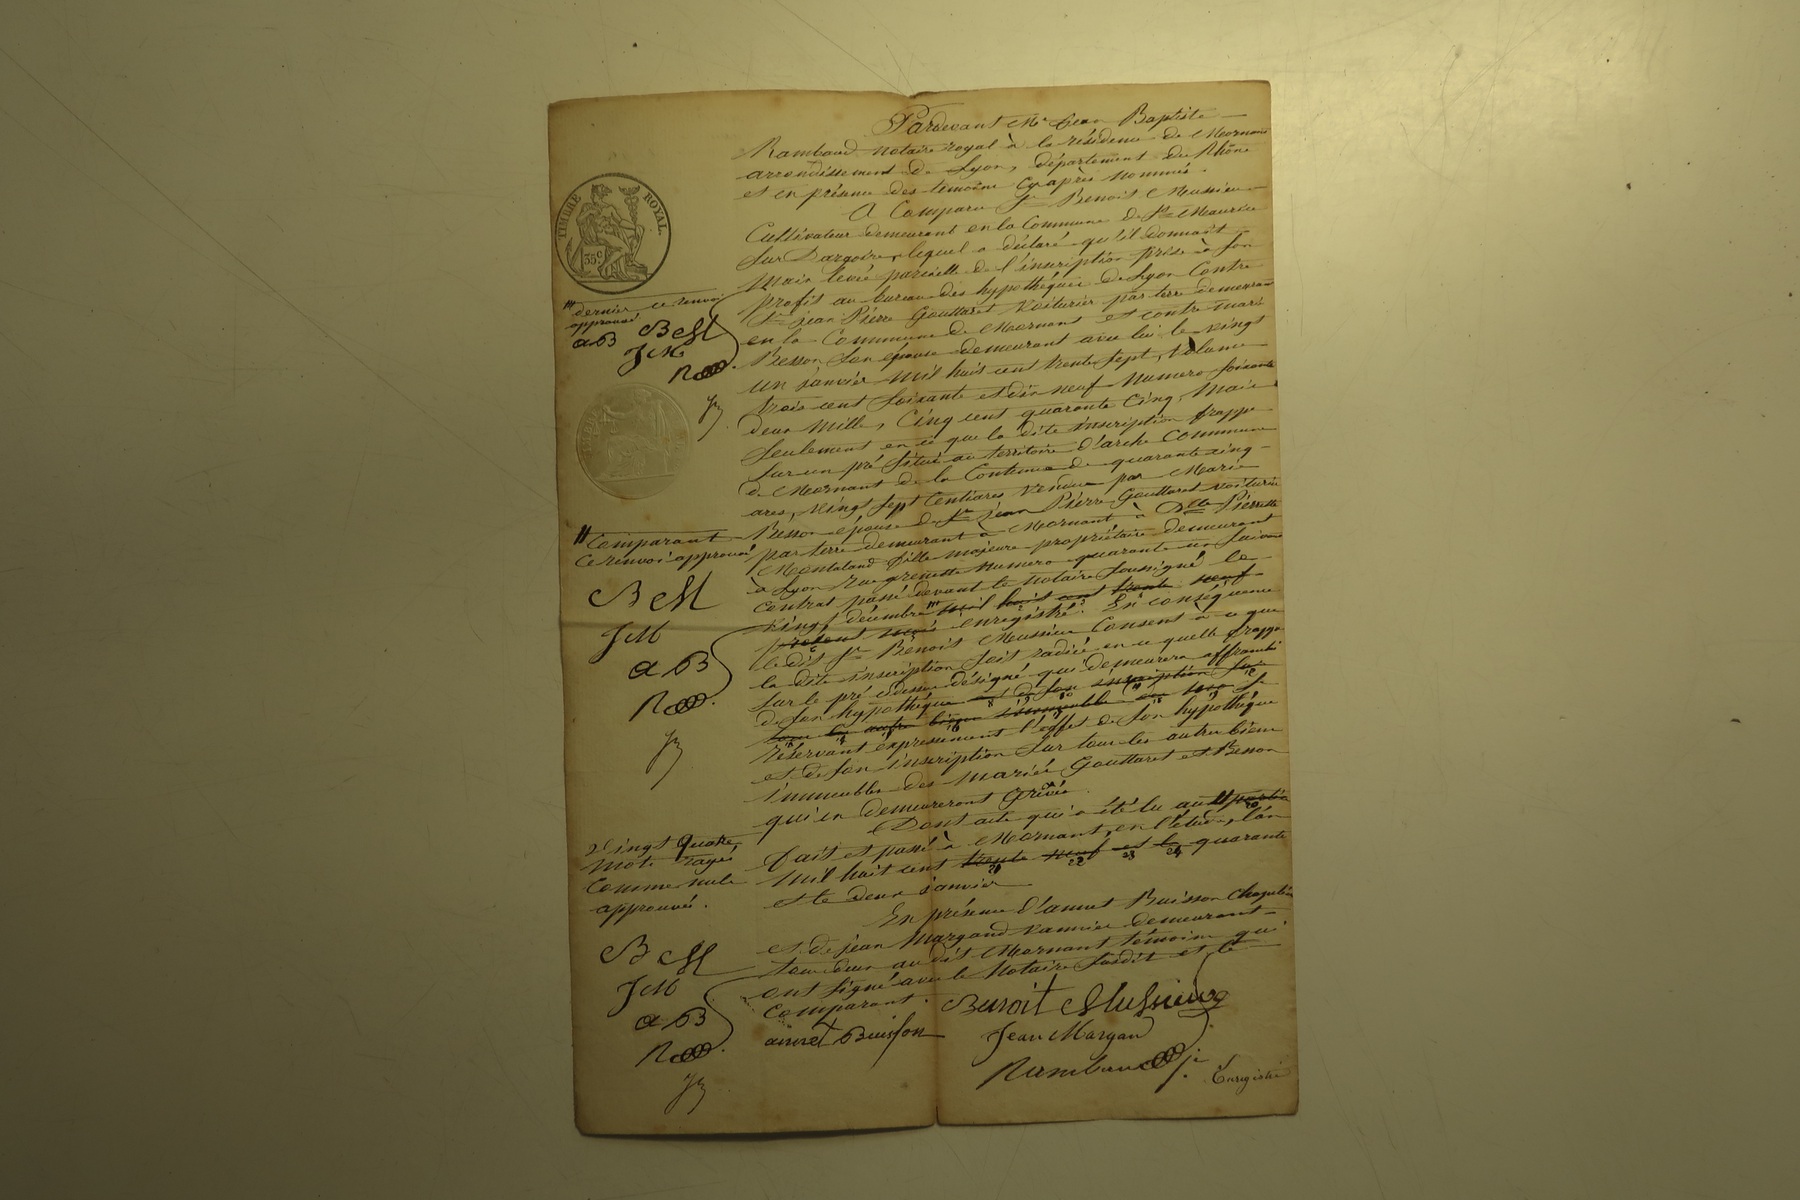 Pardevant Me Jean Baptiste
Rambaud notaire royal à la résidence de Mornant
arrondissement de Lyon, département du Rhône
et en présence des témoins cy après nommés.
A Comparu Sr Benoit Mussieu
TIMBRE ROYAL.
35c
Cultivateur demeurant en la Commune de St Maurice
sur Dargoire, lequel a déclaré qu'il donnait
main levée partielle de l'inscription prise à son
profit au bureau des hypothéques de Lyon Contre
Sr jean Pierre Gouttaret voiturier par terre demeurant
en la Commune de Mornant et contre marie
Besson son épouse demeurant avec lui le vingt
un janvier mil huit cent trente sept, volume
trois cent soixante et dix neuf Numero soixante
deux mille, Cinq cent quarante Cinq, Mais
seulement en ce que la dite inscription frappe
sur un pré situé au territoire d'arche Commune
de Mornant de la Contenue de quarante cinq
ares, vingt sept Centiares vendu par Marie
Besson épouse du Sr jean Pierre Gouttaret voiturier
par terre demeurant à Mornant à Dlle Pierrette
Montaland fille majeure propriétaire demeurant
à Lyon rue grenette numero quarante un suivant
Contrat passé devant le Notaire soussigné le
vingt décembre ''' mil huit cent trente neuf
présent mois enregistré. En conséquence
le dit Sr Benoit Mussieu Consent à ce que
la dite inscription soit radiée en ce quelle frappe
sur le pré dessus désigné qui demeurera affranchi
de son hypothéque et de son inscription sur
tous les autres biens immeubles se
réservant expressément l'effet de son hypothéque
et de son inscription sur tous les autres biens
immeubles des mariés Gouttaret et Besson
qui en demeureront Grévés.
Dont acte qui a été lu au
Fait et passé à Mornant, en l'étude, l'an
mil huit cent trente neuf et le quarante
et le deux janvier
En présence d'annet Buisson Chapelier
et de jean Margand vannier demeurant
tous deux au dit Mornant témoins qui
ont signé avec le Notaire susdit et le
Comparant.
Benoit Mussieu
annet Buisson
Jean Margan
Rambaud
Enregistré
''' dernier ce renvoi
approuvé
BM
aB
JM
R
Comparant
Ce renvoi approuvé
BM
JM
aB
R
vingt quatre
mots rayés
Comme nuls
approuvés.
BM
JM
aB
R